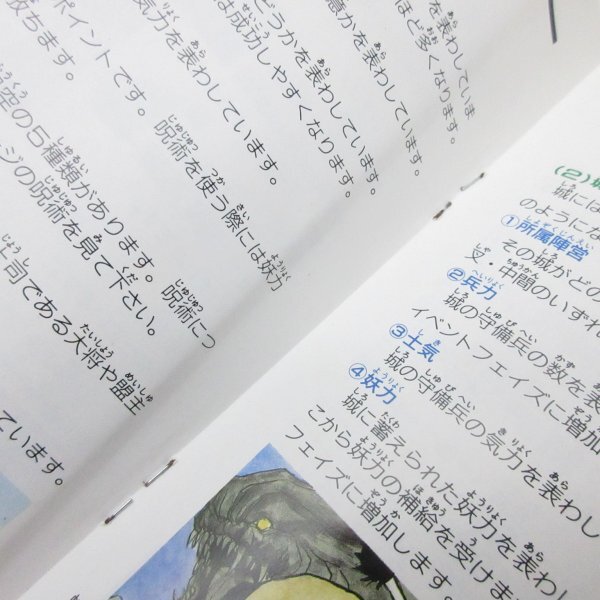 を表わしていま
ほど多くなります。
どうかを表わしています。
意かを表わしています。
は成功しやすくなります。
気力を表わしています。
ポイントです。
放ちます。
呪術を使う際には妖力
空の5種類があります。
ジの呪術を見て下さい。
呪術につ
上司である大将や盟主
ています。
(2)城
城には
のようにな
①所属陣営
その城がど
・中間のいずれ
②兵力
城の守備兵の数を表
イベントフェイズに増加
③士気
城の守備兵の気力を表わし
④妖力
城に蓄えられた妖力を表わ
こから妖力の補給を受けま
フェイズに増加します。